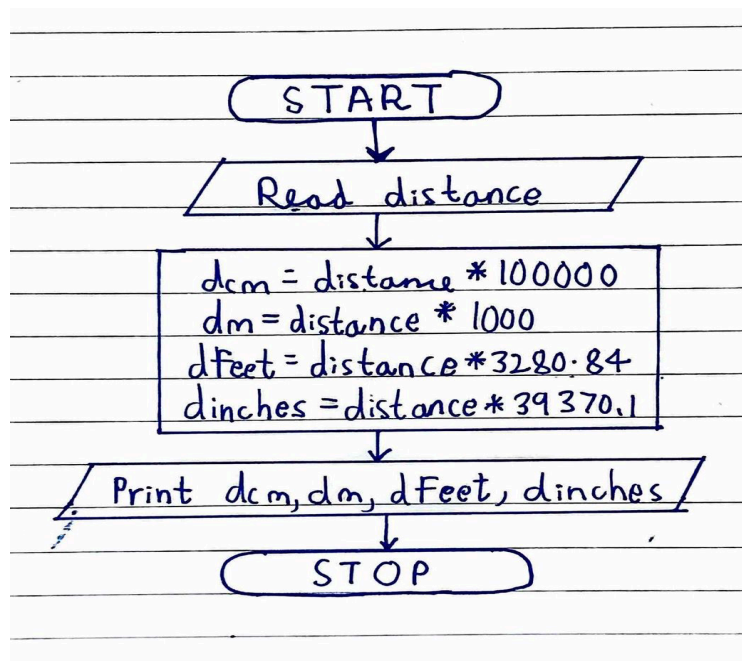 START
Read distance
dcm = distance * 100000
dm = distance * 1000
dFeet = distance * 3280.84
dinches = distance * 39370.1
Print dcm, dm, dFeet, dinches
STOP